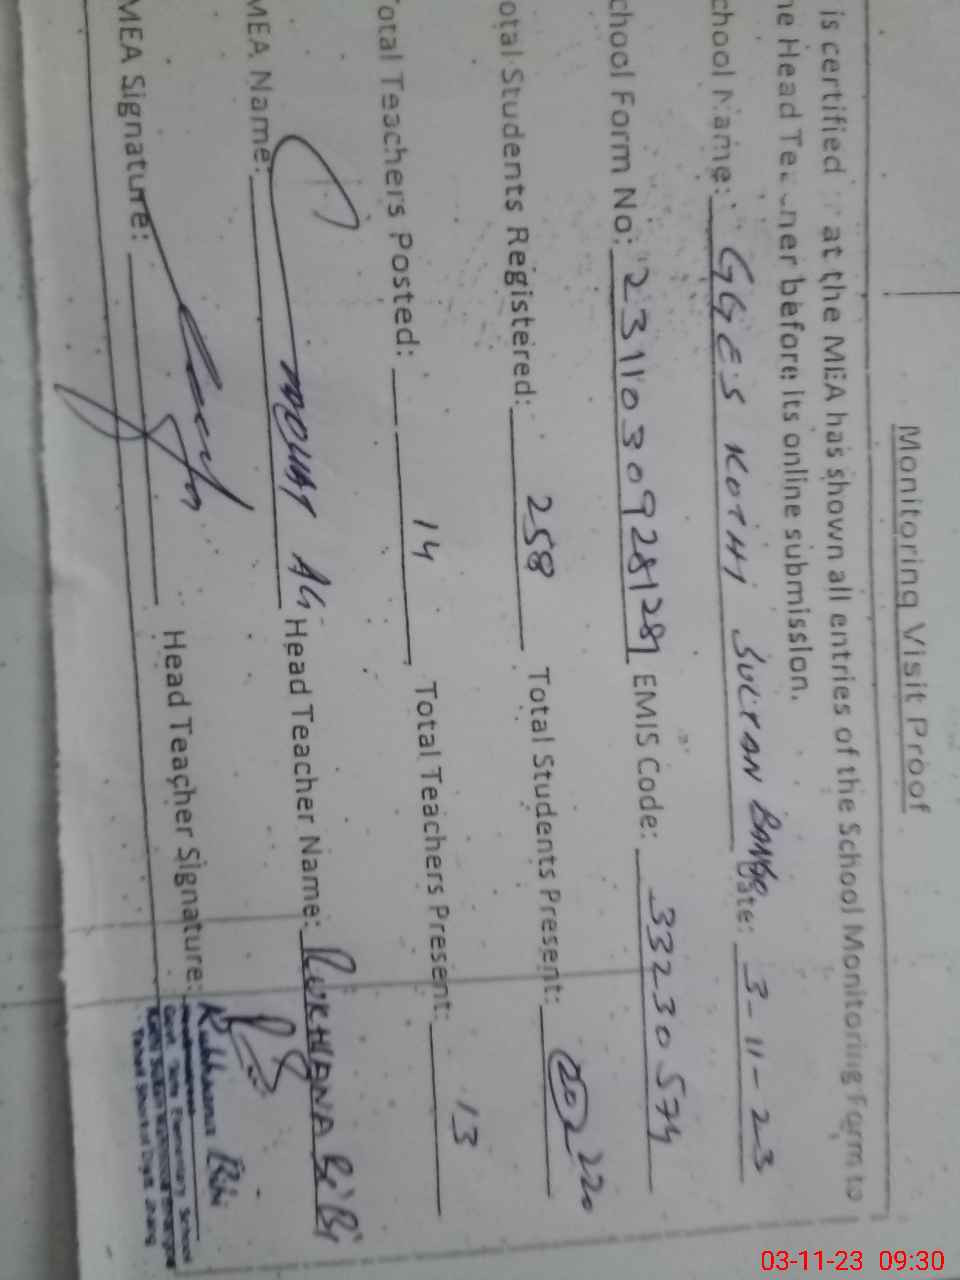 Monitoring Visit Proof
is certified at the MEA has shown all entries of the School Monitoring Form to
he Head Te ner before its online submission.
chool Name: GGES KOTHI SULTAN ate: 3-11-23
chool Form No: 2311030928128 EMIS Code: 33230574
otal Students Registered: 258 Total Students Present: 220
otal Teachers Posted: 14 Total Teachers Present: 13
MEA Name: Ali Head Teacher Name: RUKHSANA BiBi
MEA Signature: Head Teacher Signature:
Rukhsana Bibi
Govt. Girls Elementary School
03-11-23 09:30